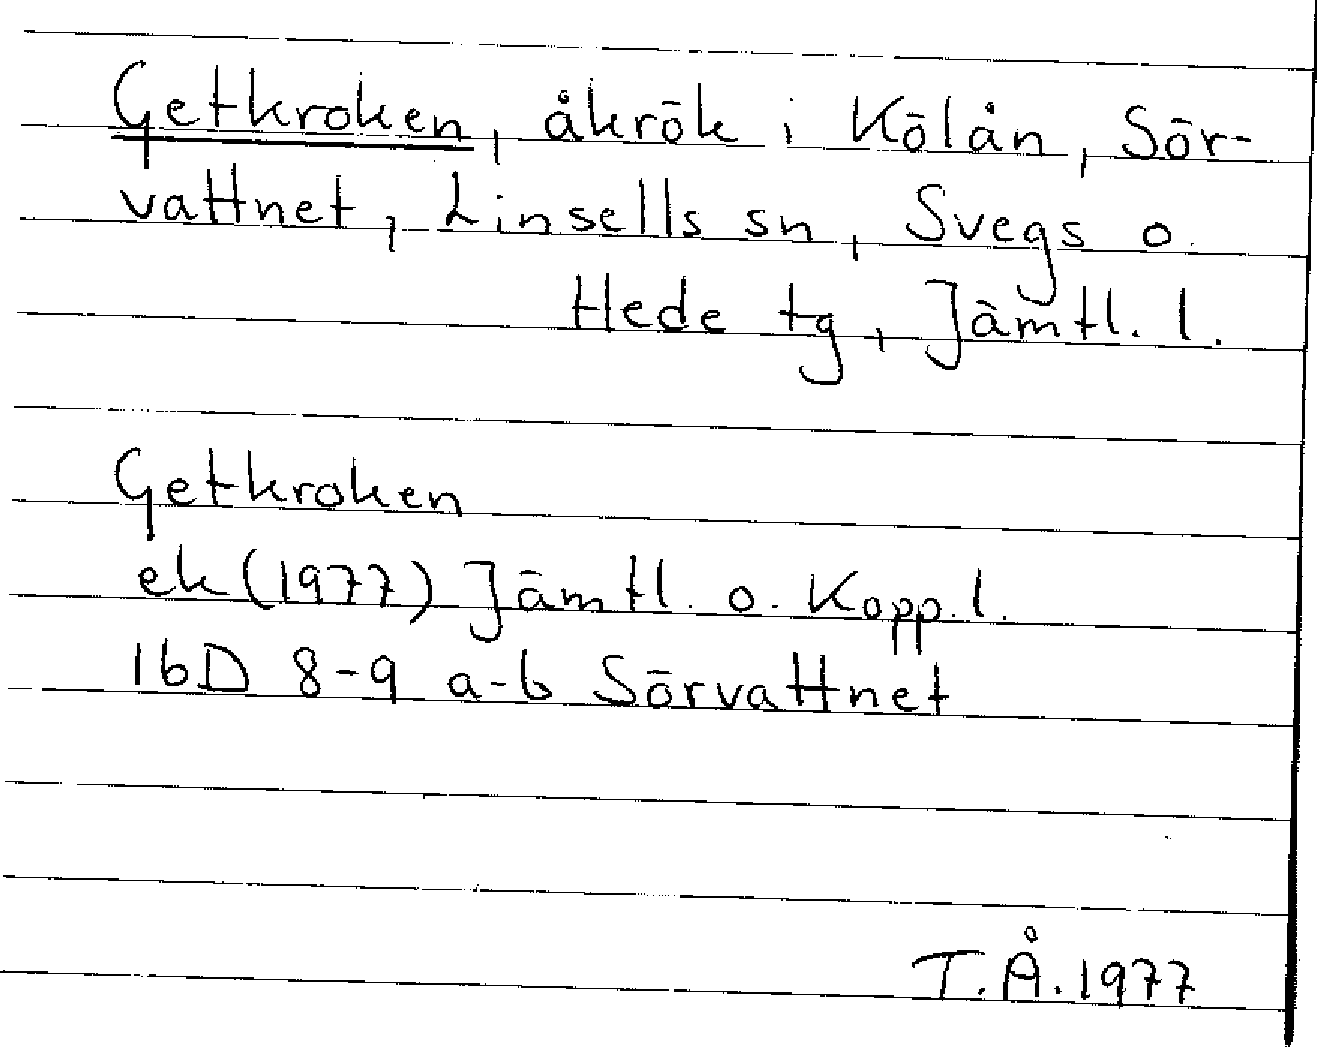 Getkroken, åkrök i Kölån, Sör-
vattnet, Linsells sn, Svegs o.
Hede tg, Jämtl. l.
Getkroken
ek (1977) Jämtl. o. Kopp. l.
16D 8-9 a-b Sörvattnet
T.Å. 1977